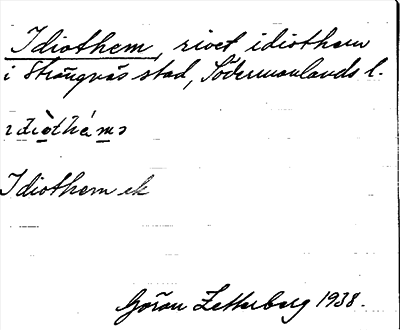 Idiothem, rivet idiothem
i Strängnäs stad, Södermanlands l.
idiòthéms
Idiothem ek
Göran Zetterberg 1938.